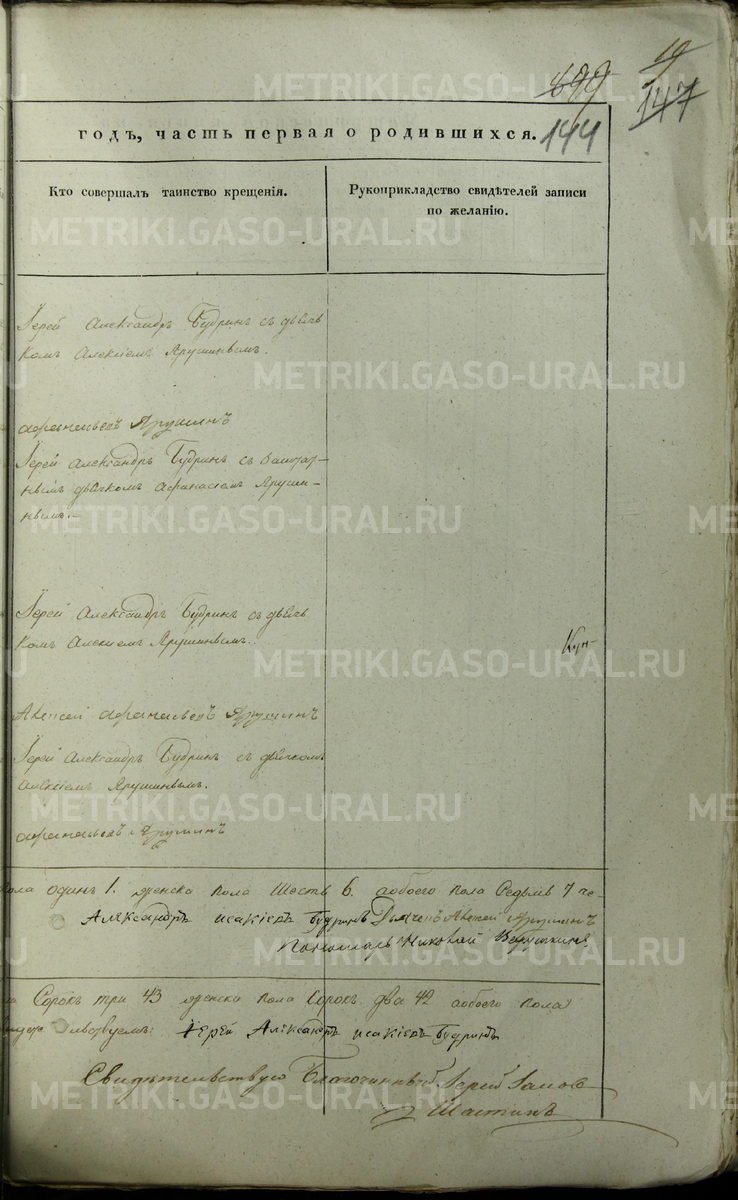 699
19
147
144
годъ, часть первая о родившихся.
Кто совершалъ таинство крещенія.
Рукоприкладство свидѣтелей записи
по желанію.
Іерей Александръ Будринъ съ дьяч
комъ Алексіемъ Ярушинымъ.
афанасьевъ Ярушинъ
Іерей Александръ Будринъ съ
дьячкомъ Афанасіемъ Яруши-
нымъ.
Іерей Александръ Будринъ съ дьяч
комъ Алексіемъ Ярушинымъ.
Алексей афанасьевъ Ярушинъ
Іерей Александръ Будринъ съ дьячкомъ
Алексіемъ Ярушинымъ.
афанасьевъ Ярушинъ
пола одинъ 1. женска пола Шесть 6. а обоего пола Седмь 7 че-
Александръ исакіевъ Будринъ Дьячекъ Алексей Ярушинъ
Пономарь Николай
Сорокъ три 43 женска пола Сорокъ два 42 а обоего пола
Іерей Александръ исакіевъ Будринъ
Свидѣтельствую Благочинный Іерей
Шастинъ
METRIKI.GASO-URAL.RU